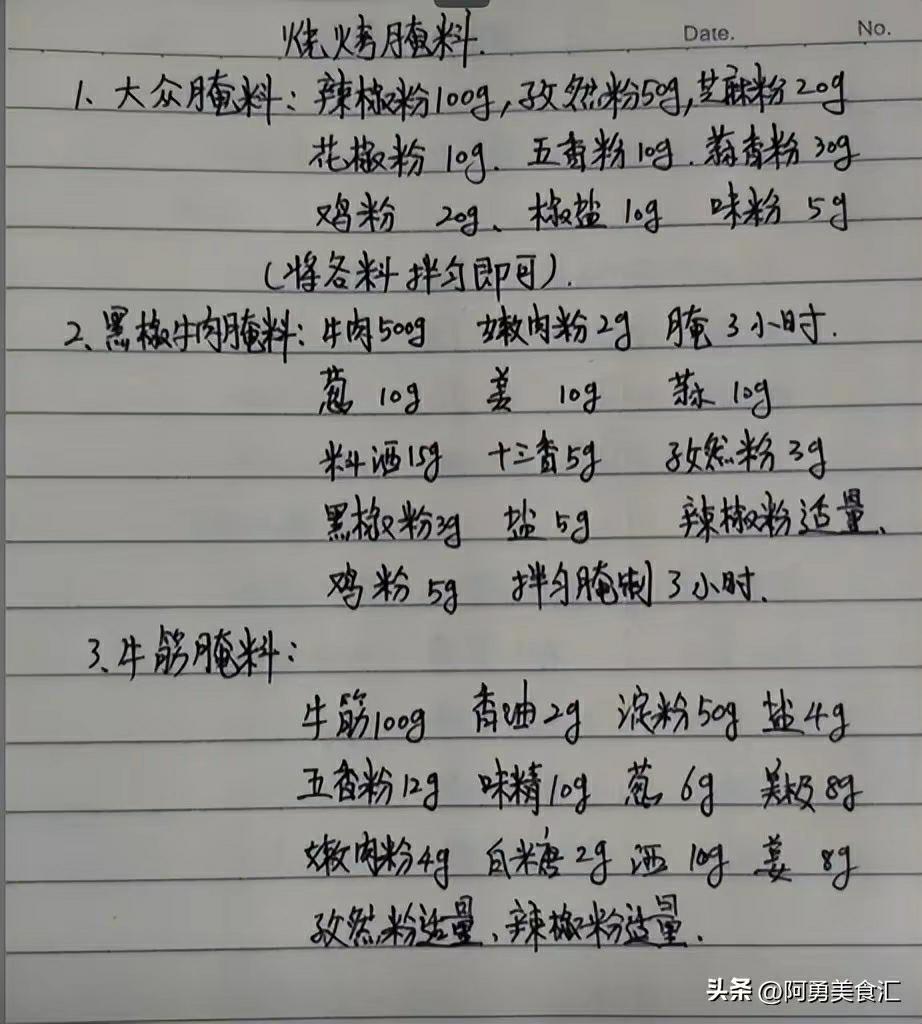 烧烤腌料.
Date.
No.
1、大众腌料：辣椒粉100g，孜然粉50g，芝麻粉20g
花椒粉 10g、五香粉10g、蒜香粉30g
鸡粉 20g、椒盐10g 味粉 5g
（将各料拌匀即可）.
2、黑椒牛肉腌料：牛肉500g 嫩肉粉2g 腌3小时.
葱 10g 姜 10g 蒜10g
料酒15g 十三香5g 孜然粉3g
黑椒粉3g 盐5g 辣椒粉适量、
鸡粉5g 拌匀腌制3小时.
3、牛筋腌料：
牛筋100g 香油2g 淀粉50g 盐4g
五香粉12g 味精10g 葱6g 美极8g
嫩肉粉4g 白糖2g 酒10g 姜8g
孜然粉适量、辣椒粉适量.
头条 @阿勇美食汇